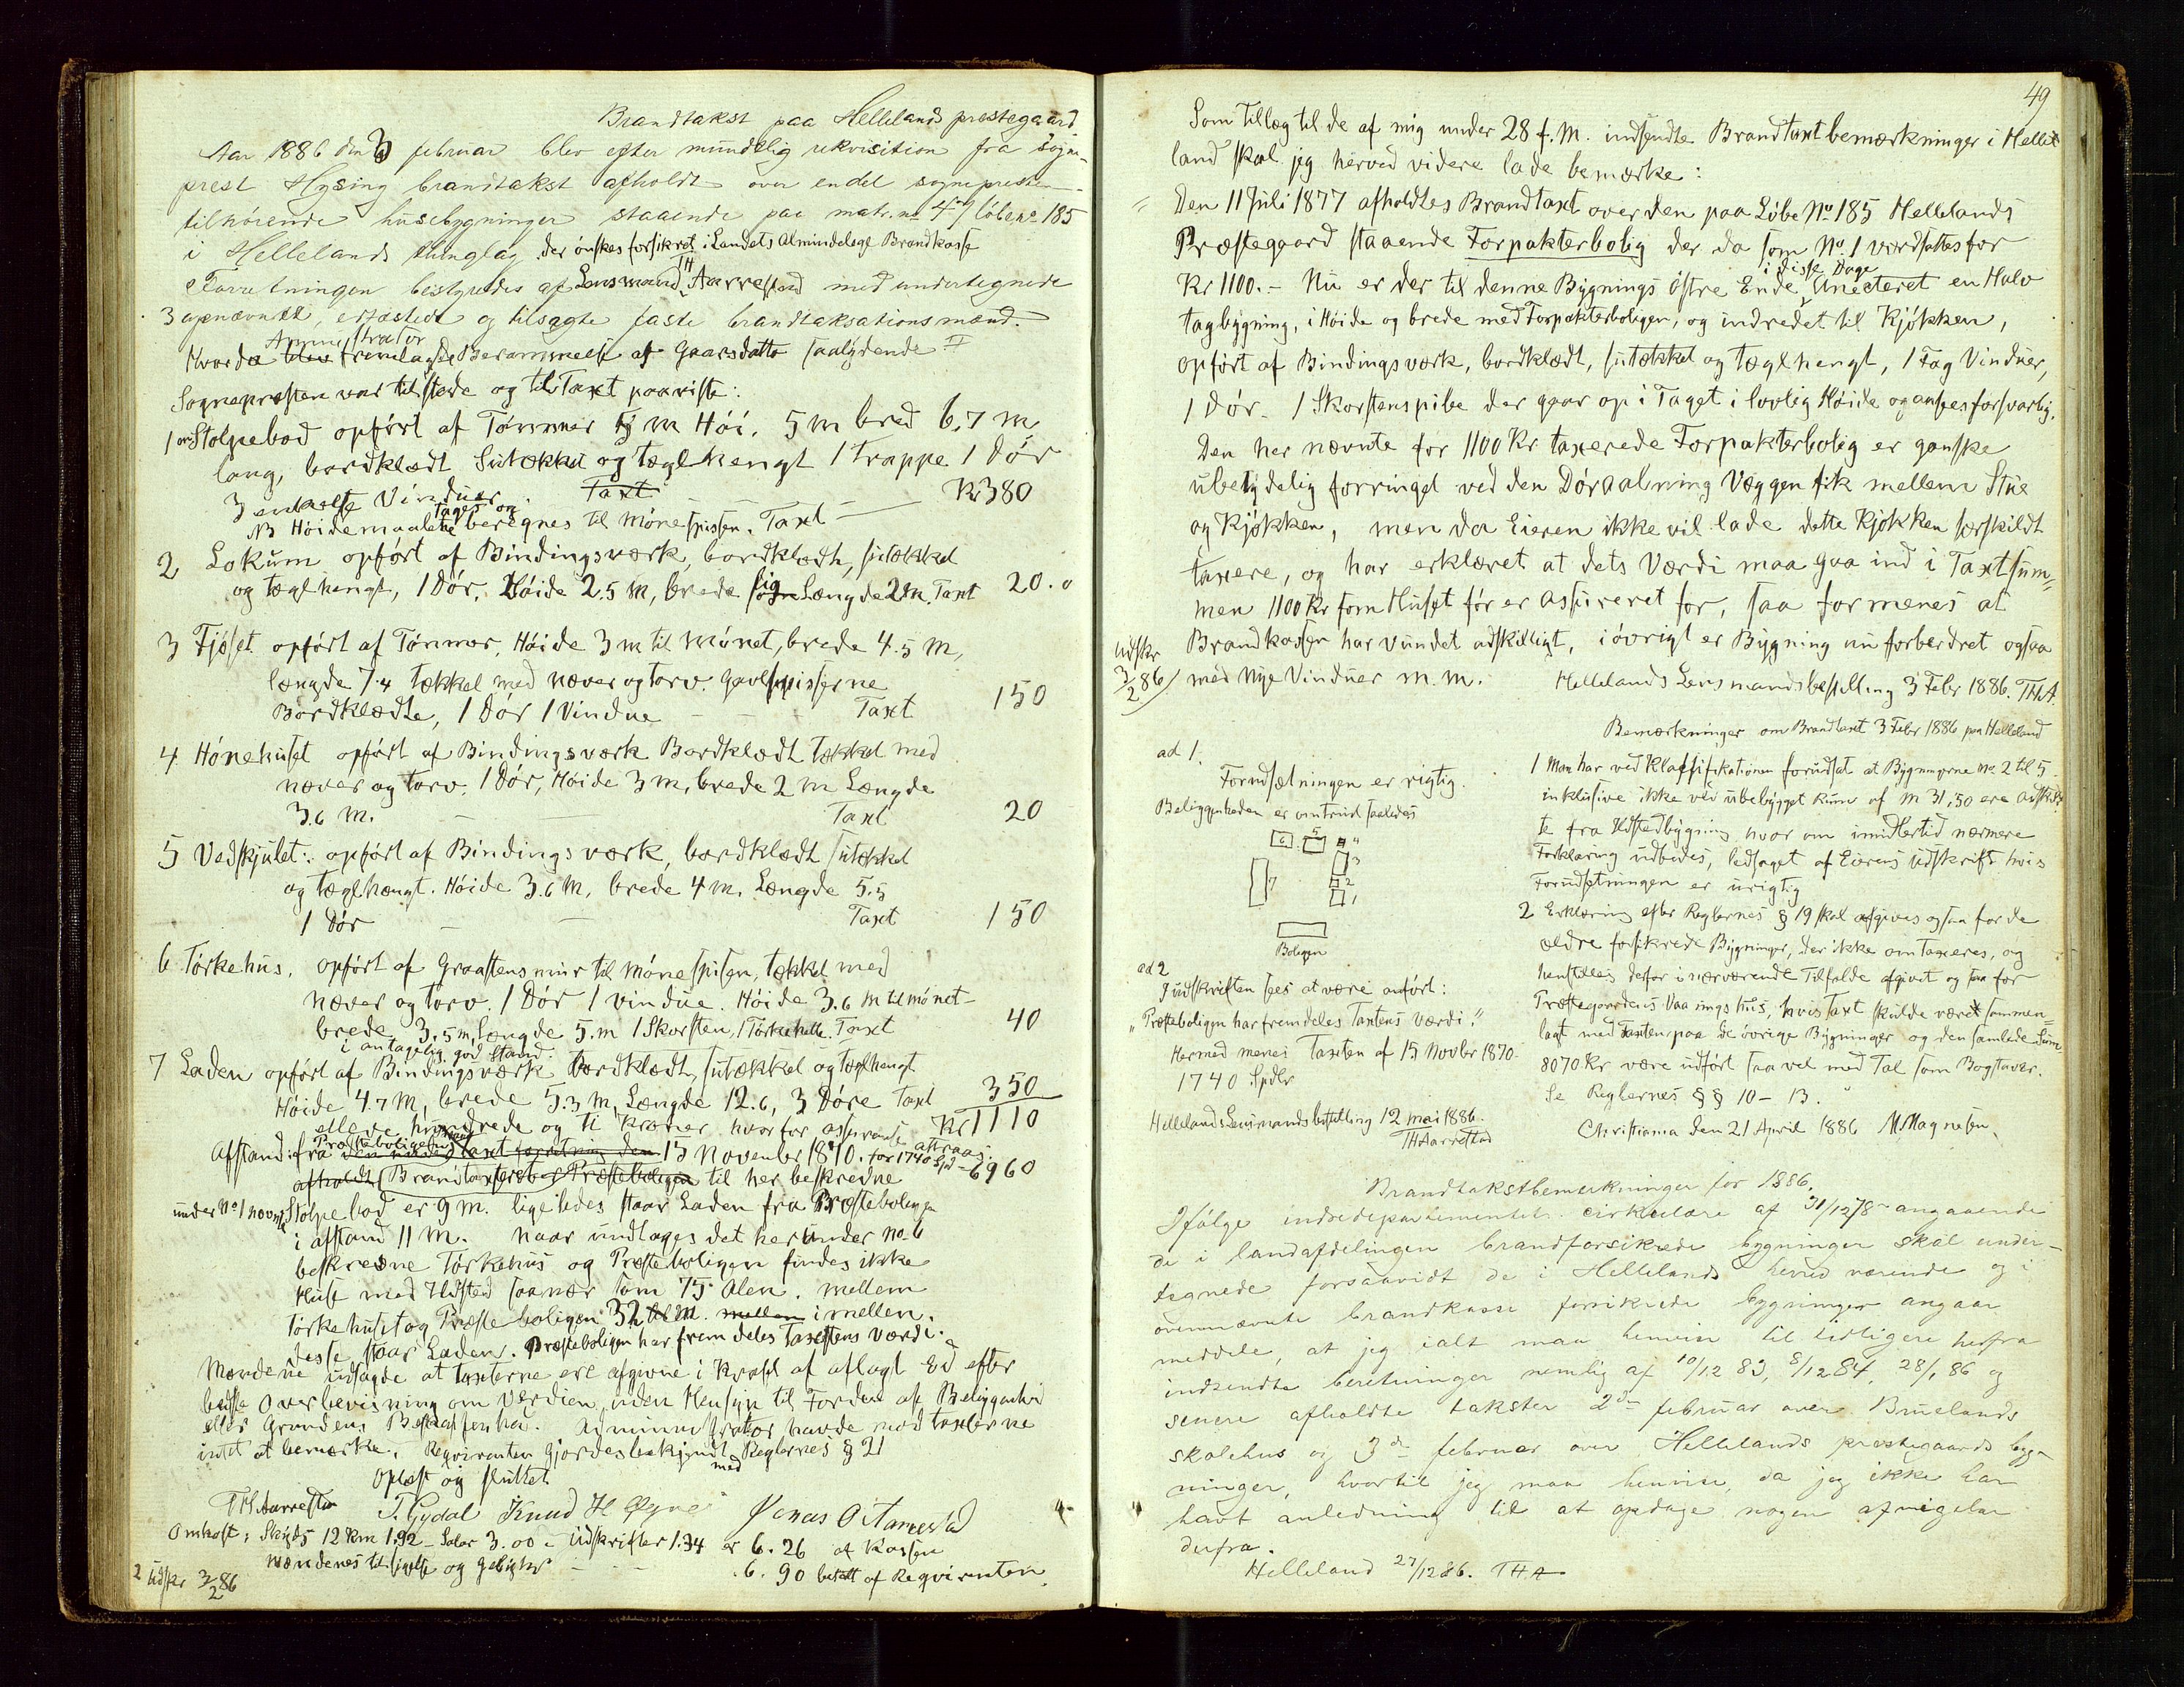 Brandtakst paa Hellelands prestegaard
Aar 1886 den 3 februar blev efter mundtlig rekvisition fra sogne-
prest Hysing brandtakst afholdt over endel sognepresten
tilhørende husebygninger staaende paa matr. no 47 løbeno 185
i Hellelands thinglag der ønskes forsikret i Landets Almindelige Brandkasse
Forretningen bestyredes af Lensmand TH Aarrestad med undertegnede
3 opnævnte, edfæstede og tilsagte faste brandtaksationsmænd.
Hvorda Administrator fremlagde Berammelse af Gaarsdatto saalydende
Sognepræsten var tilstede og til Taxt paaviste:
1 Stolpebod opført af Tømmer 5 m Høi. 5 m bred 6.7 m
lang, bordklædt Sutækket og tæglhengt 1 Trappe 1 Dør
3 enkelte Vinduer Taxt Kr 380
NB Høidemaalene tages og beregnes til Mønespissen. Taxt
2 Lokum opført af Bindingsværk, bordklædt, sutækket
og tæglhengt, 1 Dør, Høide 2.5 m, brede Længde 2 m. Taxt 20.0
3 Fjøset opført af Tømmer, Høide 3 m til Mønet, brede 4.5 m,
længde 7.4 tækket med næver og torv. Gavlspisserne
Bordklædte, 1 Dør 1 Vindue Taxt 150
4 Hønehuset opført af Bindingsværk Bordklædt Tækket med
næver og torv. 1 Dør, Høide 3 m, brede 2 m Længde
3.6 m. Taxt 20
5 Vedskjulet: opført af Bindingsværk, bordklædt sutækket
og tæglhængt. Høide 3.6 m, brede 4 m. Længde 5.5
1 Dør Taxt 150
6 Tørkehus, opført af Graastensmur til Mønespisen, tækket med
næver og torv. 1 Dør 1 vindue. Høide 3.6 m til mønet
brede 3.5 m, Længde 5. m 1 Skorsten, 1 Tørkehelle. Taxt 40
i antagelig god Stand.
7 Laden opført af Bindingsværk bordklædt, sutækket og tæglhengt
Høide 4.7 m, brede 5.3 m, Længde 12.6, 3 Døre Taxt 350
elleve hundrede og ti Kroner hvorfor assurance attraaes. Kr 1110
Afstand: fra Præsteboligens den under Taxt forretning den 15 November 1870. for 1740 Spd - 6960
afholdt Brandtaxerede Præsteboligen til her beskrevne
under No 1 nævnte Stolpebod er 9 m. ligeledes staar Laden fra Præsteboligen
i afstand 11 m. Naar undtages det herunder no 6
beskrevne Tørkehus og Præsteboligen findes ikke
Huse med Ildsted saanær som 75 Alen. mellem
Tørkehuset og Præsteboligen 32 m. mellem imellen.
desse staar Laden. Præsteboligen har fremdeles Taxtens Værdi.
Mændene udsagde at taxterne ere afgivne i Kraft af aflagt Ed efter
bedste Overbevisning om Værdien, uden Hensyn til Fordel af Beliggenhed
eller Grundens Beskaffenhed. Administrator havde mod taxterne
intet at bemærke. Reqvirenten gjordes bekjendt med Reglernes § 21
Oplæst og sluttet
TH Aarrestad T. Gydal Knud H Øgne Jonas O Aarrestad
Omkost: Skyds 12 Km 1.92 - Salar 3.00 - Udskrifter 1.34 er 6.26 af Kassen
Mændenes tilsigelse og Gebyhr 6.90 betalt af Reqvirenten.
2 Udskr 3/2 86
49
Som Tillæg til de af mig under 28 f. M. indsendte Brandtaxtbemærkninger i Helle
land skal jeg herved videre lade bemærke:
Den 11 Juli 1877 afholdtes Brandtaxt over den paa Løbe No 185 Hellelands
Præstegaard staaende Forpakterbolig der da som No 1 værdsattes for
Kr 1100.- Nu er der til denne Bygnings østre Ende i disse Dage Anecteret en Halv
tagbygning, i Høide og brede med Forpakterboligen, og indredet til Kjøkken,
opført af Bindingsværk, bordklædt, sutækket og tæglhengt, 1 Fag Vinduer,
1 Dør. 1 Skorstenspibe der gaar op i Taget i lovlig Høide og ansees forsvarlig.
Den her nævnte for 1100 Kr taxerede Forpakterbolig er ganske
ubetydelig forringet ved den Døraabning Væggen fik mellem Stue
og Kjøkken, men da Eieren ikke vil lade dette Kjøkken særskildt
taxere, og har erklæret at dets Værdi maa gaa ind i Taxtsum-
men 1100 Kr som Huset før er assureret for, saa formenes at
Brandkassen har vundet adskilligt, iøvrigt er Bygning nu forberdret ogsaa
med nye Vinduer m.m. Hellelands Lensmandsbestilling 3 Febr 1886. THA.
Udskr
3/2 86
ad 1.
Forudsætningen er rigtig.
Beliggenheden er omtrent saaledes
6 5 4
3
7 2
1
Boligen
ad 2
I udskriften sees at være anført:
"Præsteboligen har fremdeles Taxtens Værdi."
Hermed menes Taxten af 15 Novbr 1870.
1740 Spdlr
Hellelands Lensmandsbestilling 12 mai 1886.
TH Aarrestad
Bemærkninger om Brandtaxt 3 Febr 1886 paa Helleland
1 Man har ved Klassifikationen forudsat at Bygningerne no. 2 til 5
inklusive ikke ved ubebygget Rum af M 31,50 ere adskil
te fra Ildstedbygning hvor om imidlertid nærmere
Forklaring udbedes, ledsaget af Eierens Udskrift hvis
Forudsætningen er urigtig
2 Erklæring efter Reglernes § 19 skal afgives ogsaa for de
ældre forsikrede Bygninger, der ikke omtaxeres, og
henstilles derfor i nærværende Tilfælde afgivet og saa for
Præstegaardens Vaaningshus, hvis Taxt skulde været sammen
lagt med Taxten paa de øvrige Bygninger og den samlede Sum
8070 Kr være udført saavel med Tal som Bogstaver.
Se Reglernes §§ 10 - 13.
Christiania den 21 April 1886 M. Magnesen.
Brandtakstbemerkninger for 1886.
Ifølge indredepartementets cirkulære af 31/12 78 angaaende
de i landafdelingen brandforsikrede bygninger skal under-
tegnede forsaavidt de i Hellelands herred værende og i
ovennævnte brandkasse forsikrede bygninger angaar
meddele, at jeg ialt maa henvise til tidligere herfra
indsendte beretninger nemlig af 10/12 83, 8/12 84, 28/1 86 og
senere afholdte takster 2den februar over Bruelands
skolehus og 3de februar over Hellelands prestegaards byg-
ninger, hvortil jeg maa henvise, da jeg ikke har
havt anledning til at opdage nogen afvigelse
derfra.
Helleland 27/12 86. THA